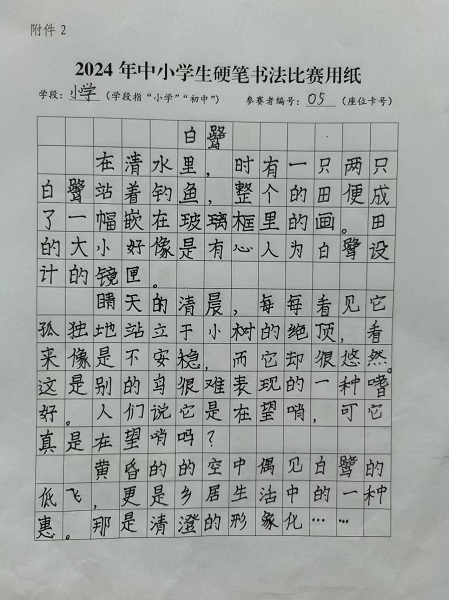 附件2
2024年中小学生硬笔书法比赛用纸
学段：小学（学段指“小学”“初中”） 参赛者编号：05（座位卡号）
白鹭
在清水里，时有一只两只
白鹭站着钓鱼，整个的田便成
了一幅嵌在玻璃框里的画。田
的大小好像是有心人为白鹭设
计的镜匣。
晴天的清晨，每每看见它
孤独地站立于小树的绝顶，看
来像是不安稳，而它却很悠然。
这是别的鸟很难表现的一种嗜
好。人们说它是在望哨，可它
真是在望哨吗？
黄昏的的空中偶见白鹭的
低飞，更是乡居生活中的一种
惠。那是清澄的形象化……